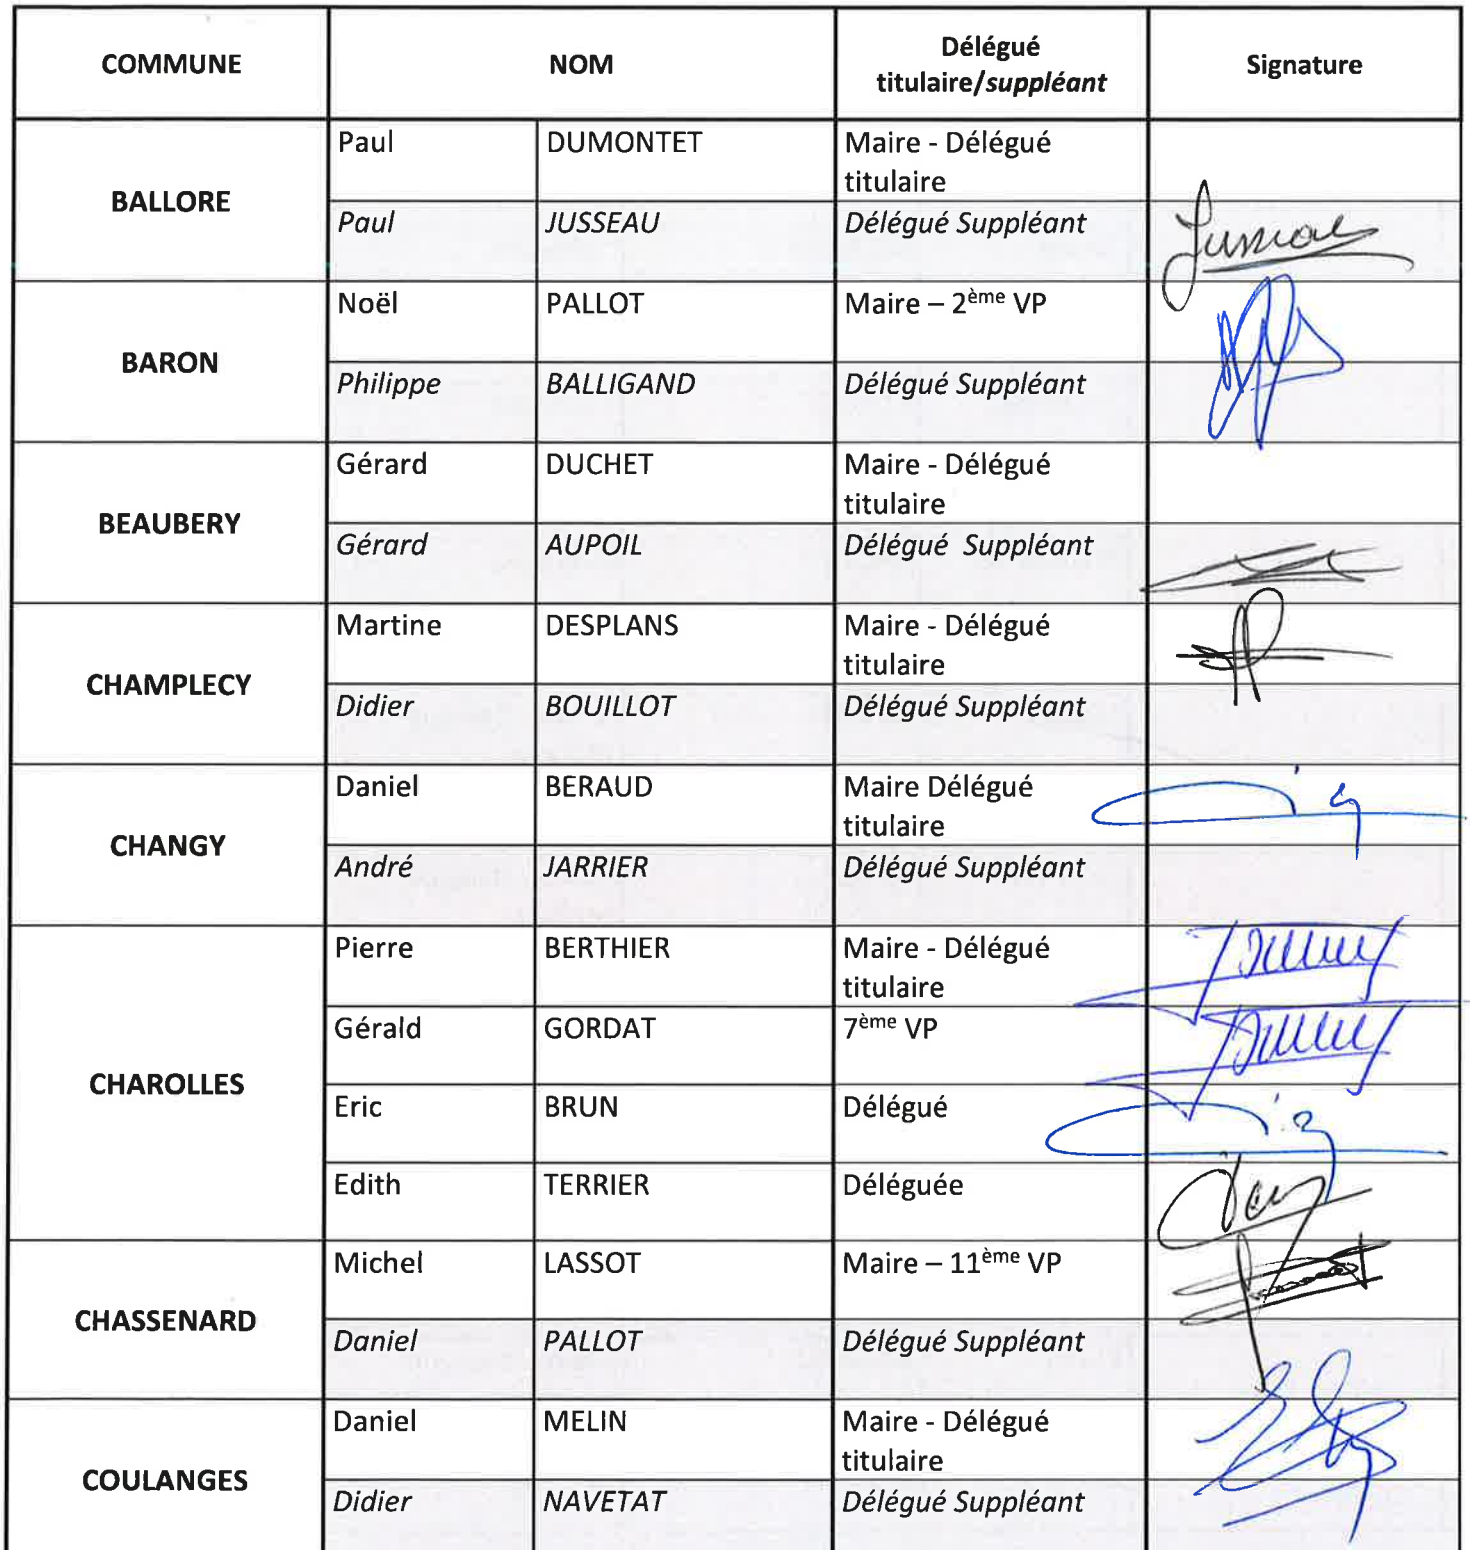 COMMUNE NOM Délégué titulaire/suppléant Signature
BALLORE
Paul DUMONTET Maire - Délégué
titulaire
Paul JUSSEAU Délégué Suppléant
BARON
Noël PALLOT Maire – 2ème VP
Philippe BALLIGAND Délégué Suppléant
BEAUBERY
Gérard DUCHET Maire - Délégué
titulaire
Gérard AUPOIL Délégué Suppléant
CHAMPLECY
Martine DESPLANS Maire - Délégué
titulaire
Didier BOUILLOT Délégué Suppléant
CHANGY
Daniel BERAUD Maire Délégué
titulaire
André JARRIER Délégué Suppléant
CHAROLLES
Pierre BERTHIER Maire - Délégué
titulaire
Gérald GORDAT 7ème VP
Eric BRUN Délégué
Edith TERRIER Déléguée
CHASSENARD
Michel LASSOT Maire – 11ème VP
Daniel PALLOT Délégué Suppléant
COULANGES
Daniel MELIN Maire - Délégué
titulaire
Didier NAVETAT Délégué Suppléant